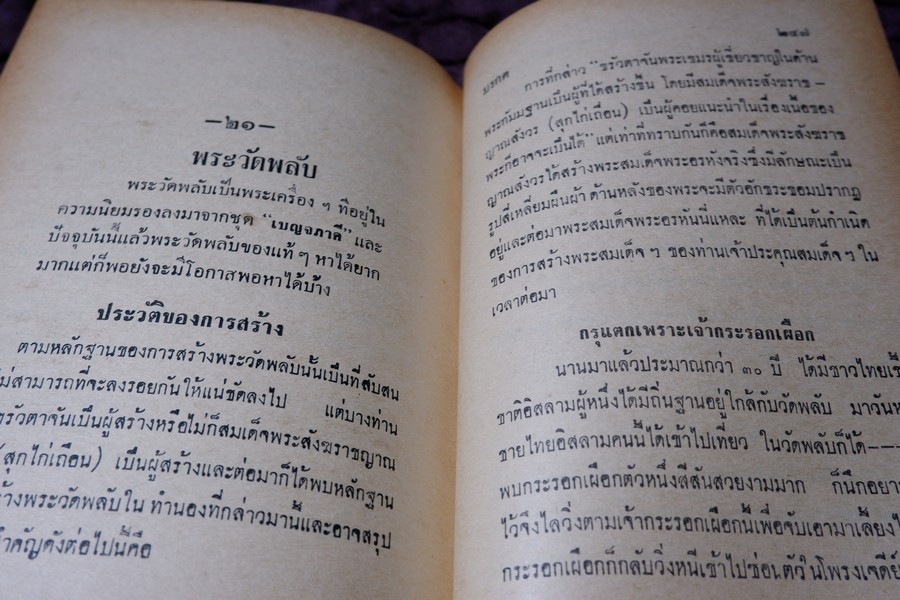 —๒๑—
พระวัดพลับ
พระวัดพลับเป็นพระเครื่อง ๆ ที่อยู่ใน
ความนิยมรองลงมาจากชุด "เบญจภาคี" และ
ปัจจุบันนี้แล้วพระวัดพลับของแท้ ๆ หาได้ยาก
มากแต่ก็พอยังจะมีโอกาสพอหาได้บ้าง
ประวัติของการสร้าง
ตามหลักฐานของการสร้างพระวัดพลับนั้นเป็นที่สับสน
ไม่สามารถที่จะลงรอยกันให้แน่ชัดลงไป แต่บางท่าน
ขรัวตาจันเป็นผู้สร้างหรือไม่ก็สมเด็จพระสังฆราชญาณ
(สุกไก่เถื่อน) เป็นผู้สร้างและต่อมาก็ได้พบหลักฐาน
ร้างพระวัดพลับใน ทำนองที่กล่าวมานี้และอาจสรุป
ำคัญดังต่อไปนี้คือ
๒๔๗
มรกต การที่กล่าว "ขรัวตาจันพระเขมรผู้เชี่ยวชาญในด้าน
พระกัมมฐานเป็นผู้ที่ได้สร้างขึ้น โดยมีสมเด็จพระสังฆราช –
ญาณสังวร (สุกไก่เถื่อน) เป็นผู้คอยแนะนำในเรื่องเนื้อของ
พระก็อาจจะเป็นได้" แต่เท่าที่ทราบกันก็คือสมเด็จพระสังฆราช
ญาณสังวรได้สร้างพระสมเด็จพระอรหังจริงซึ่งมีลักษณะเป็น
รูปสี่เหลี่ยมผืนผ้า ด้านหลังของพระจะมีตัวอักขระขอมปรากฏ
อยู่และต่อมาพระสมเด็จพระอรหันนี่แหละ ที่ได้เป็นต้นกำเนิด
ของการสร้างพระสมเด็จ ๆ ของท่านเจ้าประคุณสมเด็จ ๆ ใน
เวลาต่อมา
กรุแตกเพราะเจ้ากระรอกเผือก
นานมาแล้วประมาณกว่า ๓๐ ปี ได้มีชาวไทยเชื้
ชาติอิสลามผู้หนึ่งได้มีถิ่นฐานอยู่ใกล้กับวัดพลับ มาวันห
ชายไทยอิสลามคนนี้ได้เข้าไปเที่ยว ในวัดพลับก็ได้——
พบกระรอกเผือกตัวหนึ่งสีสันสวยงามมาก ก็นึกอยา
ไว้จึงไล่วิ่งตามเจ้ากระรอกเผือกนี้เพื่อจับเอามาเลี้ยงไ
กระรอกเผือกก็กลับวิ่งหนีเข้าไปซ่อนตัวในโพรงเจดีย์